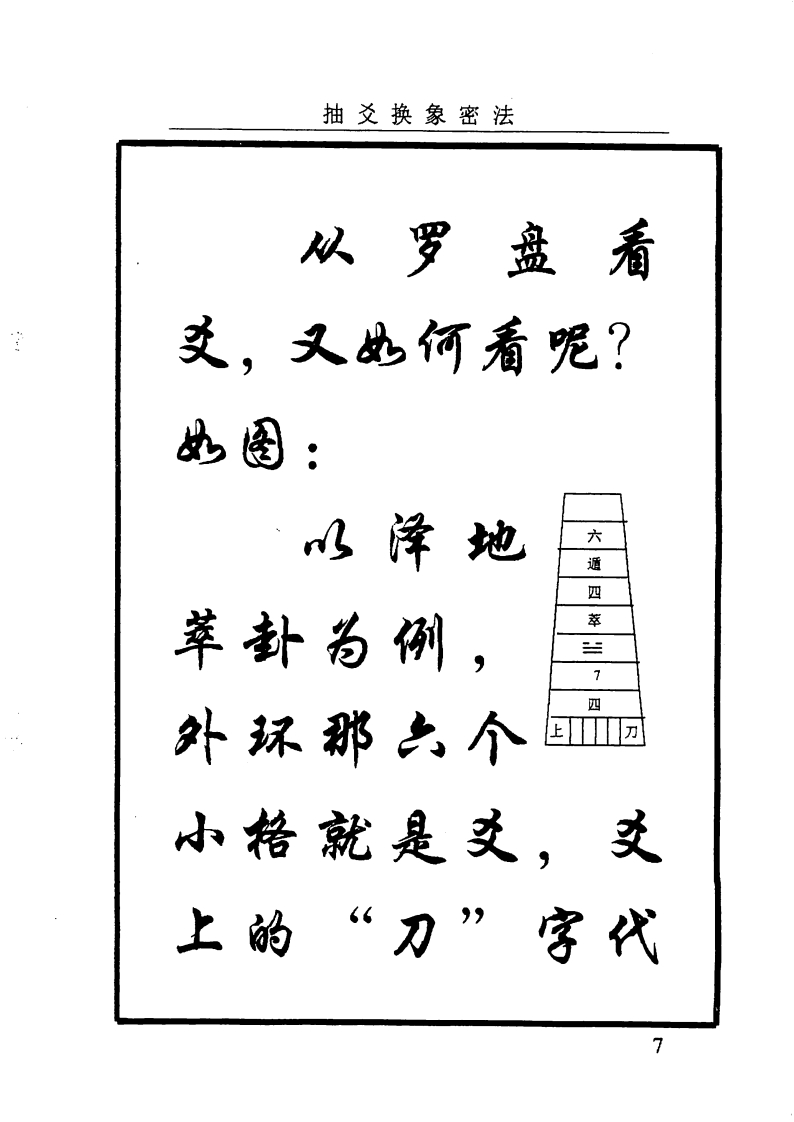 抽爻换象密法
从罗盘看
爻，又如何看呢？
如图：
以泽地
萃卦为例，
外环那六个
小格就是爻，爻
上的“刀”字代
六
遁
四
萃
☱☷
7
四
上 刀
7